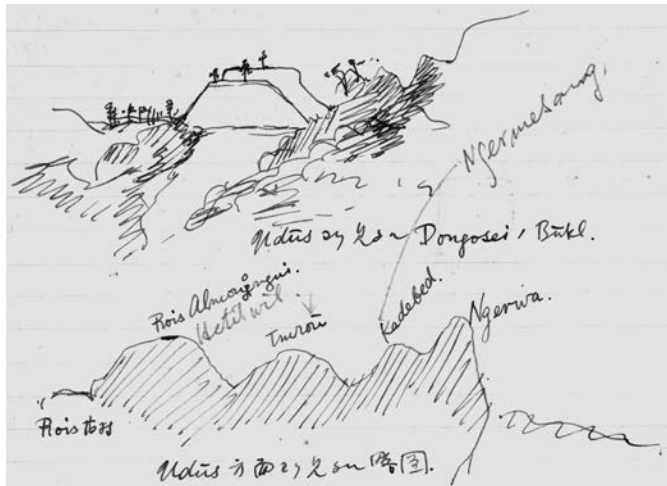 Ngermesang.
Udūsヨリ見タル Dongosei, Būkl.
Rois
Hetilwil.
Tmroū
Kedebed.
Ngeriwa.
Rois古村
Udūs方面ヨリ見タル略図.